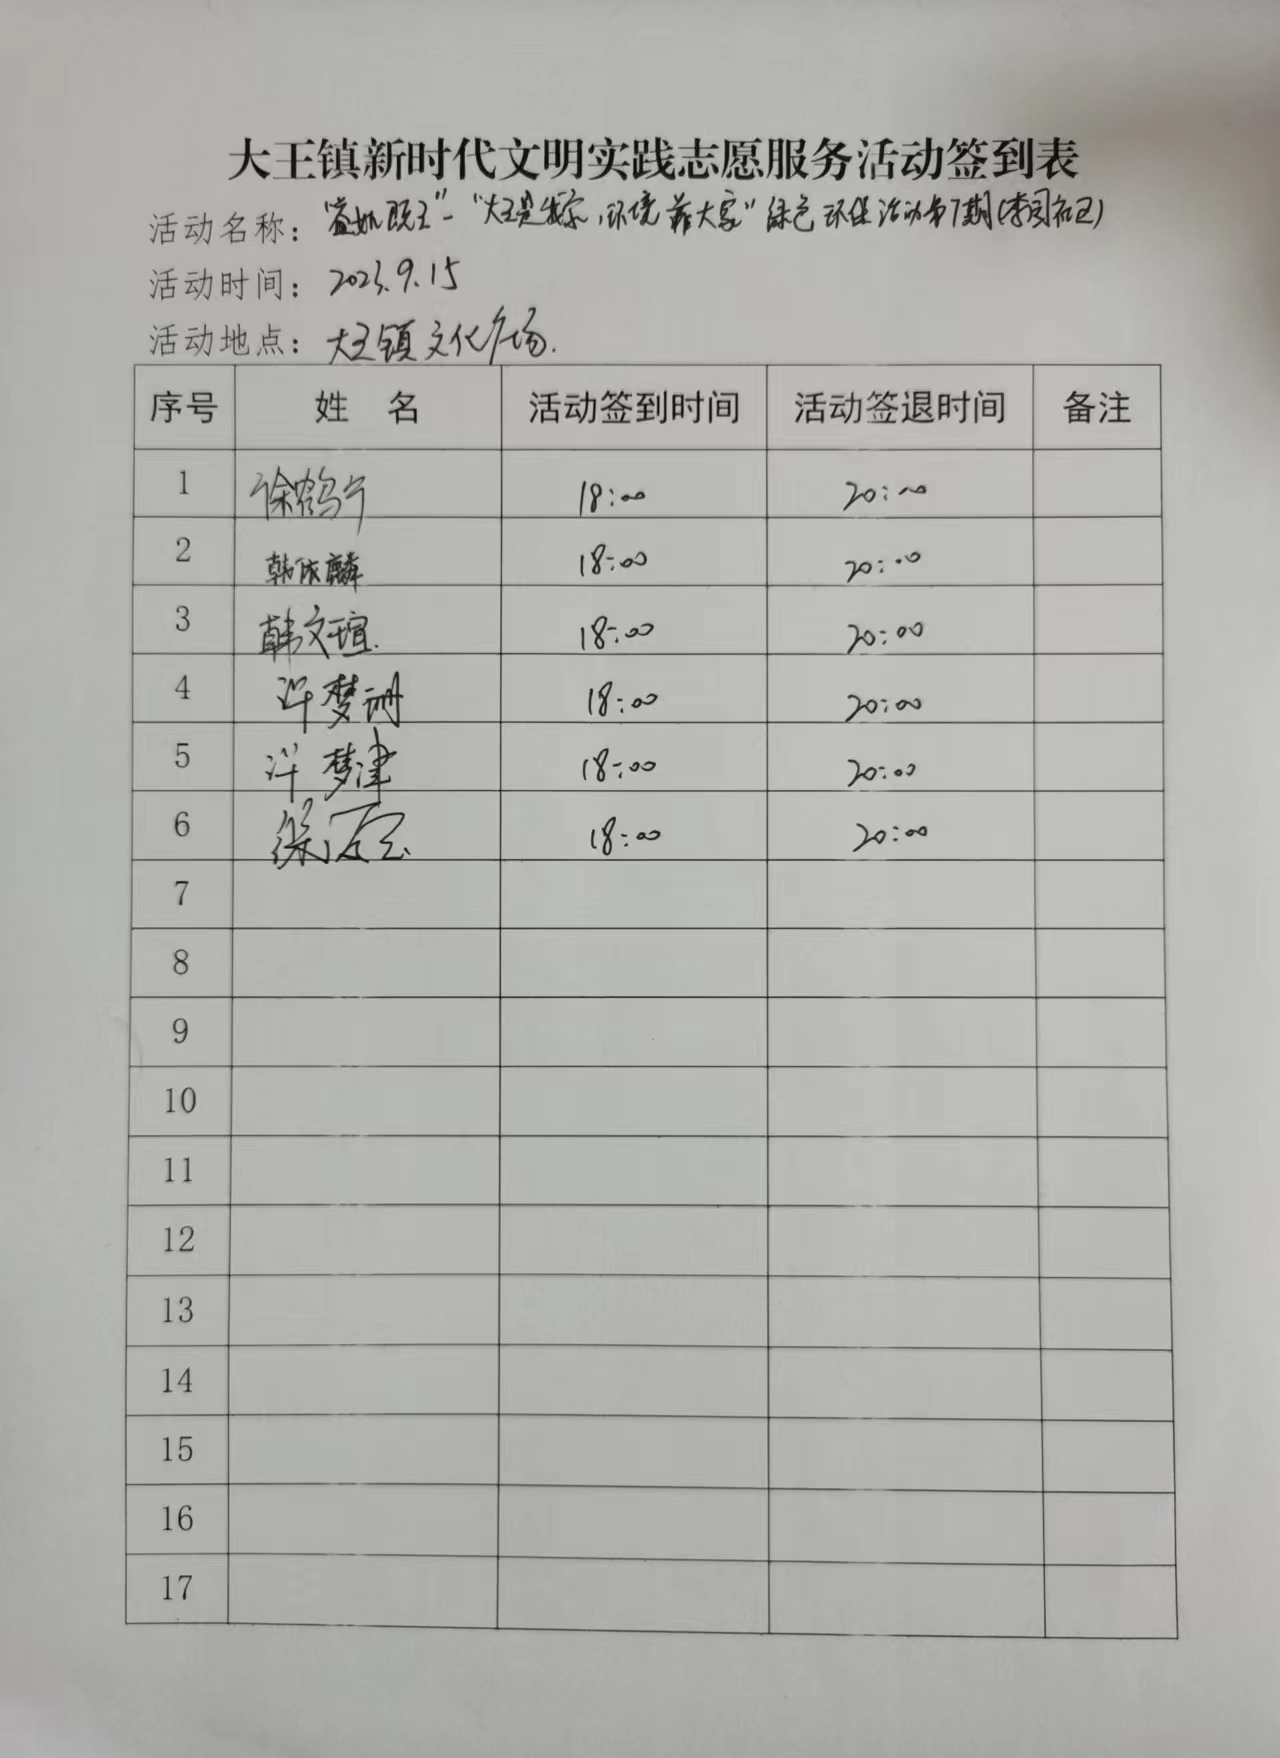 大王镇新时代文明实践志愿服务活动签到表
活动名称："益如既王"-"大王是我家,环境靠大家"绿色环保活动第7期(李园社区)
活动时间：2023.9.15
活动地点：大王镇文化广场.
序号 姓 名 活动签到时间 活动签退时间 备注
1 徐鹤宁 18:00 20:00
2 韩依麟 18:00 20:00
3 韩文瑄. 18:00 20:00
4 许梦洲 18:00 20:00
5 许梦津 18:00 20:00
6 18:00 20:00
7
8
9
10
11
12
13
14
15
16
17